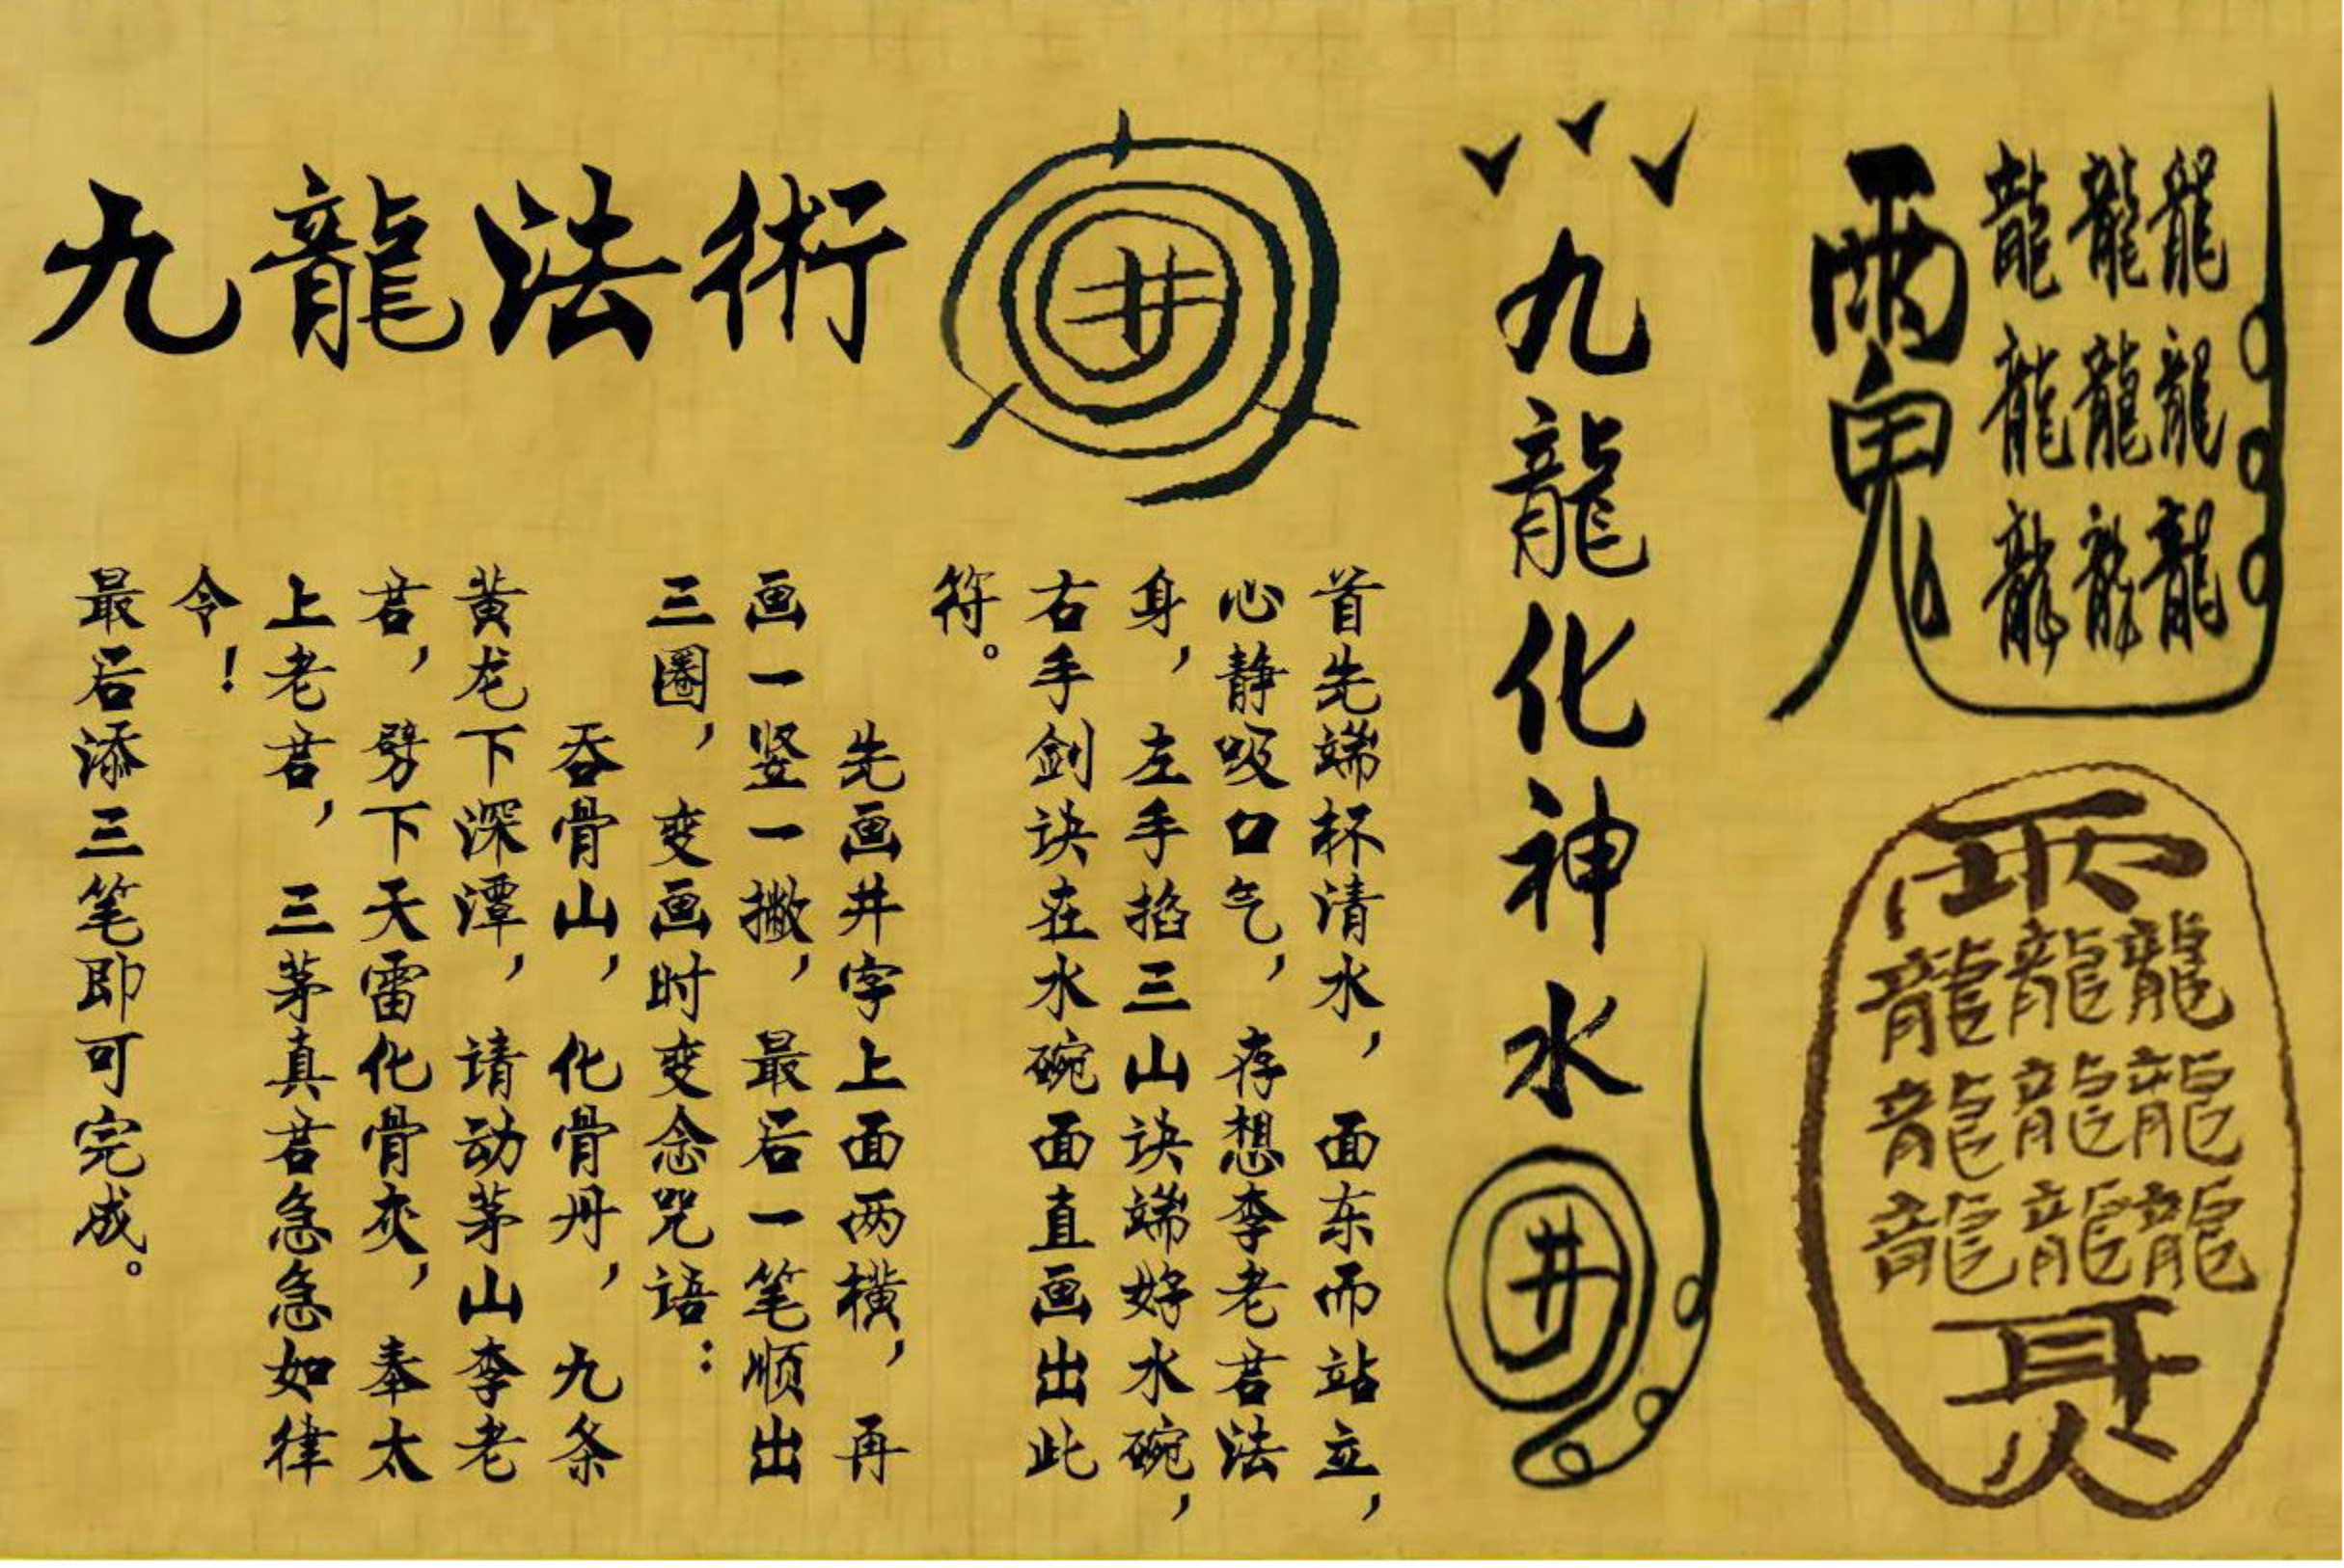 九龍法術
井
龍龍龍
龍龍龍
龍龍龍
雨鬼
雨
龍龍龍
龍龍龍
龍龍龍
九龍化神水
井
首先端杯清水，面东而站立，
心静吸口气，存想李老君法
身，左手掐三山诀端好水碗，
右手剑诀在水碗面直画出此
符。
先画井字上面两横，再
画一竖一撇，最后一笔顺出
三圈，变画时变念咒语：
吞骨山，化骨丹，九条
黄龙下深潭，请动茅山李老
君，劈下天雷化骨灰，奉太
上老君，三茅真君急急如律
令！
最后添三笔即可完成。